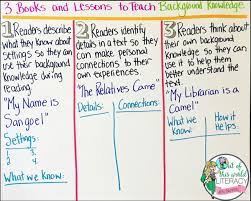 3 Books and Lessons to Teach Background Knowledge
1 Readers describe
what they know about
settings so they an
use their background
knowledge during
reading.
"My Name is
Sangoel"
Settings:
1 3
2 4
What we know:
2 Readers identify
details in a text so they
can make personal
connections to their
own experiences.
"The Relatives Came"
Details: Connections:
3 Readers think about
their own background
knowledge so they can
use it to help them
better understand the
text.
"My Librarian is a
Camel"
What we How it
Know: Helps:
Out of
this world
LITERACY